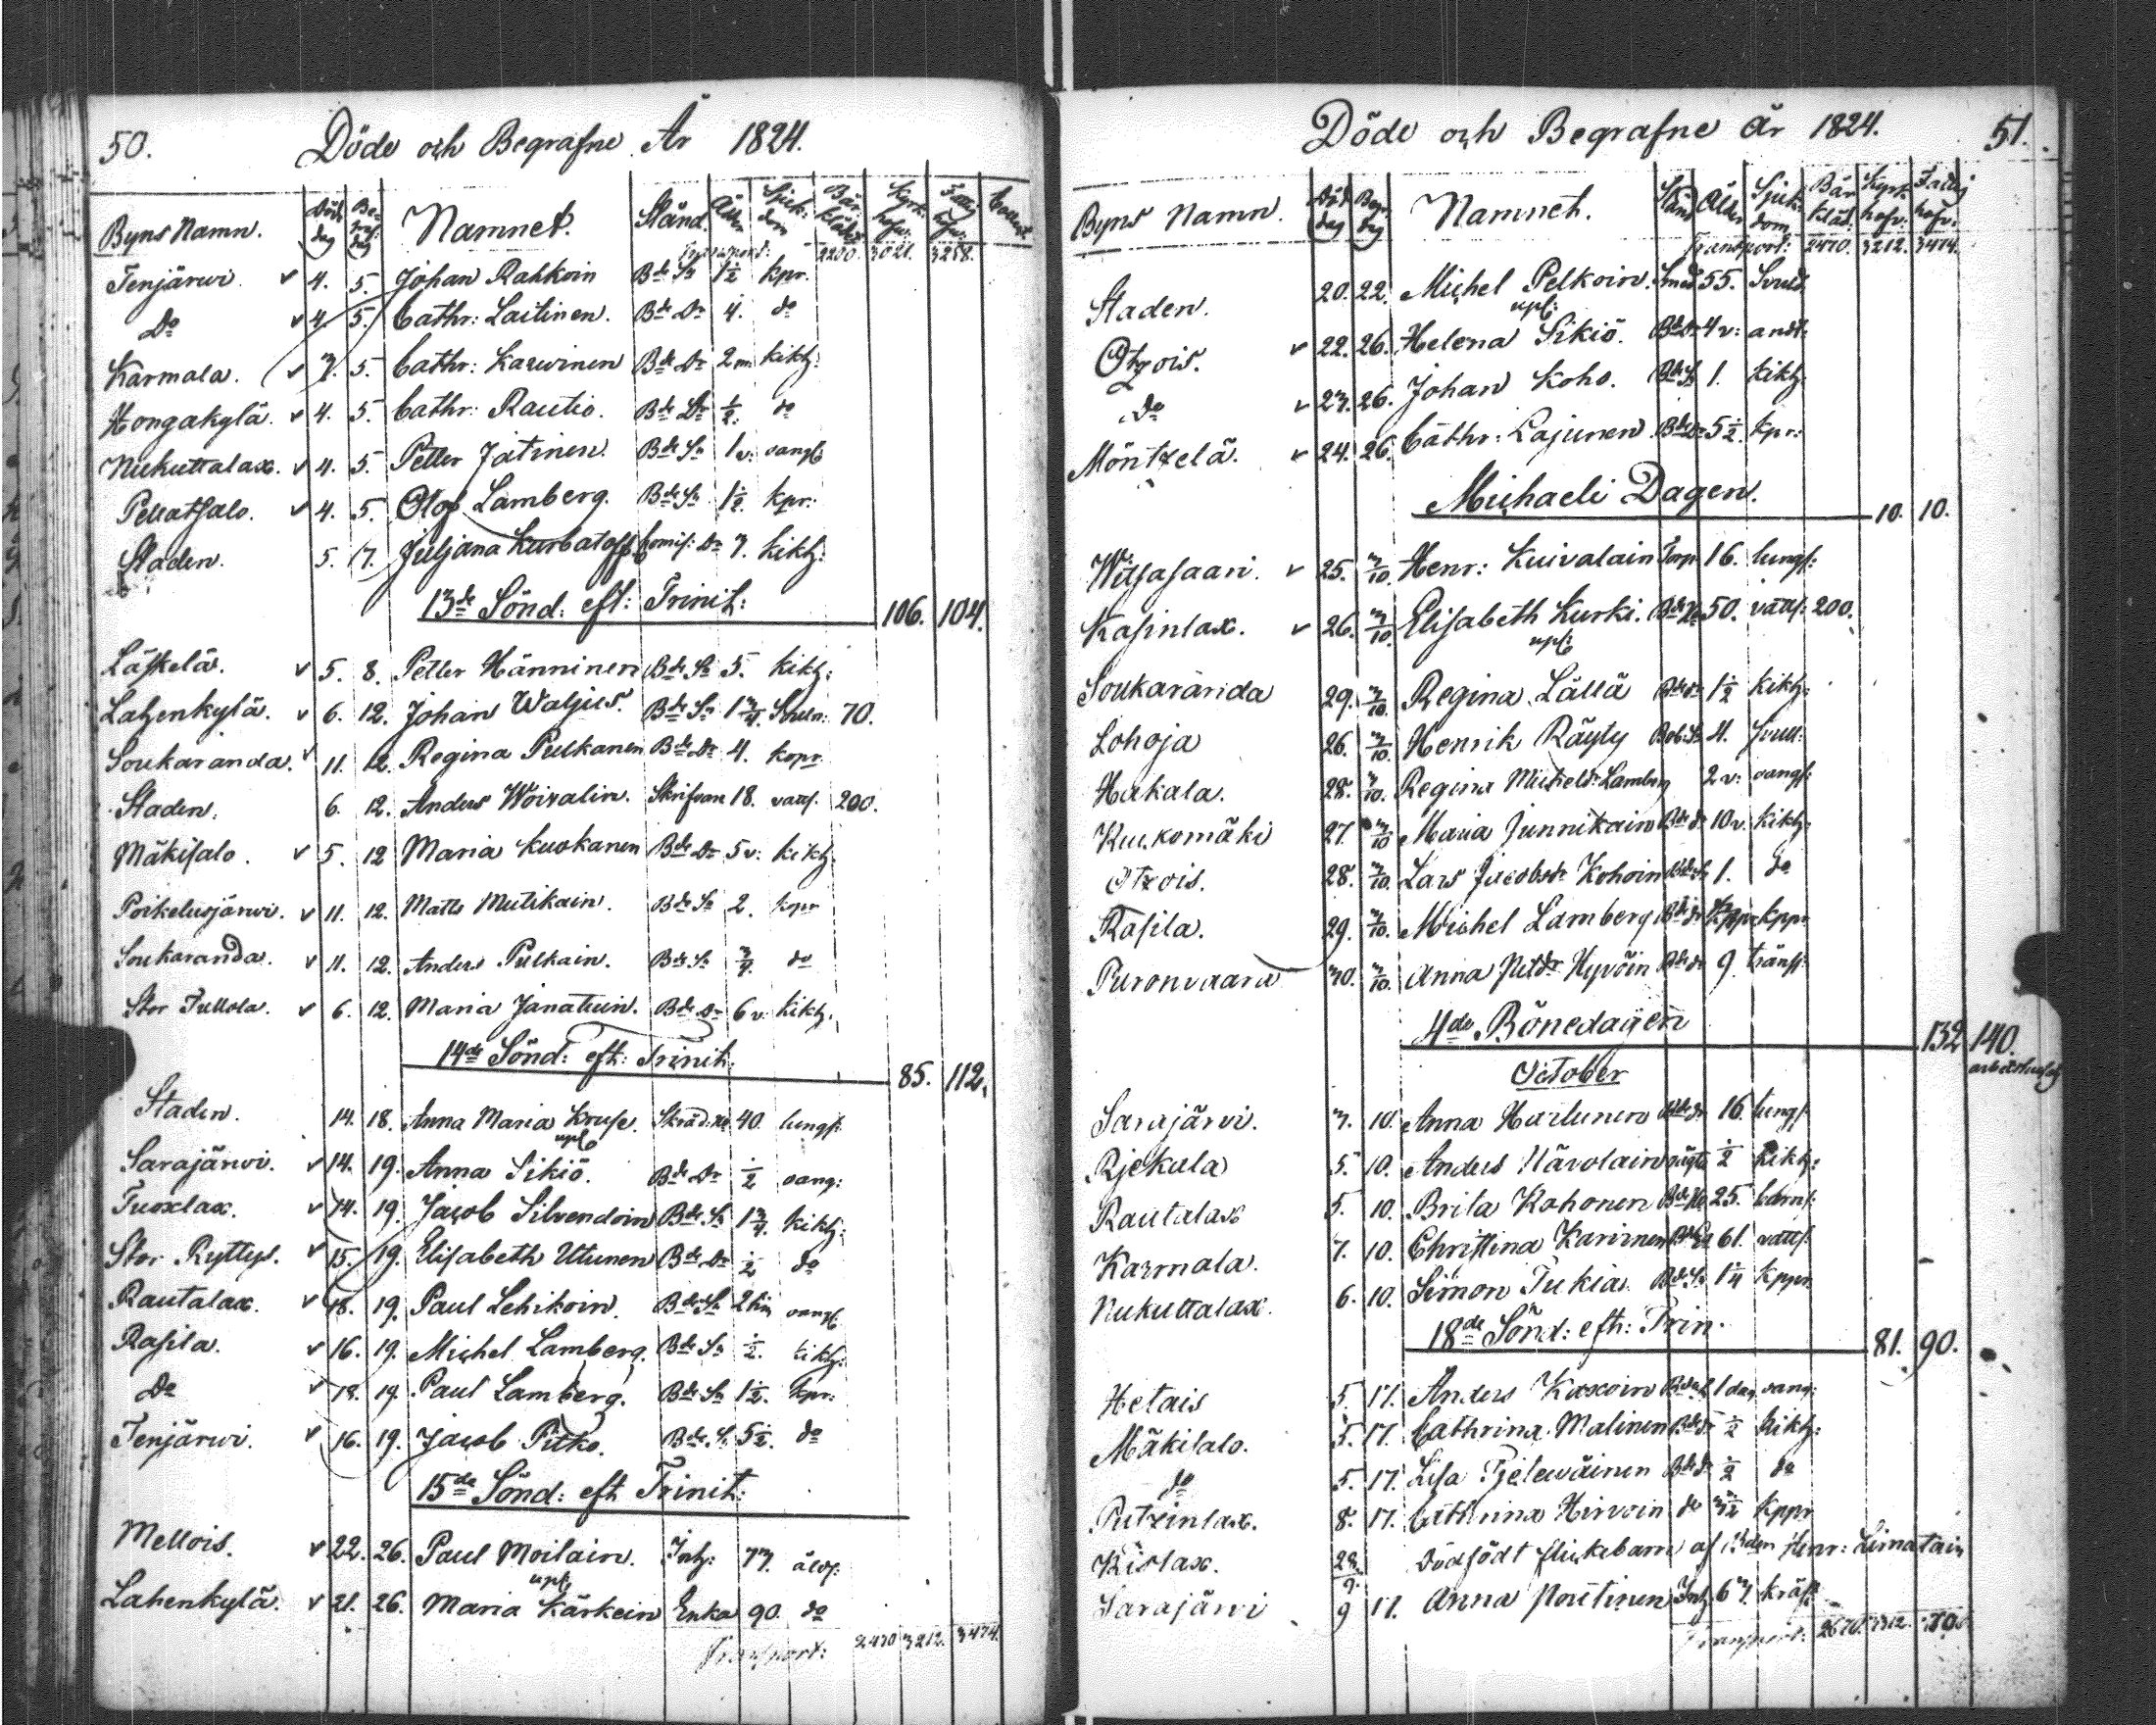 50.
Döde och Begrafne År 1824.
Byns Namn. Död dag Be- graf: dag Namnet. Stånd. Ålder Sjuk: dom Bår kläde Kyrk. hofv: Fattig hofv: Collect
Transport: 2200. 3021. 3258.
Tenjärwi. v 4. 5. Johan Rahkoin Bde Sn 1½ kpr.
Do v 4. 5. Cathr: Laitinen. Bde Dr 4. do
Karmala. v 3. 5. Cathr: Karwinen Bde Dr 2 m kikh:
Hongakylä. v 4. 5. Cathr: Rautio. Bde Dr ½. do
Nukuttalax. v 4. 5. Petter Jatinen. Bde Sn 1 v: oangf:
Pellatsalo. v 4. 5. Olof Lamberg. Bde Sn 1½ kpr:
Staden. 5. 7. Juljana Kurbatoff Comis: Dr 3. kikh:
13de Sönd: eft: Trinit: 106. 104.
Läskelä. v 5. 8. Petter Hänninen Bde Sn 5. kikh:
Lahenkylä. v 6. 12. Johan Waljus. Bde Sn 1¾. 70.
Soukaranda. v 11. 12. Regina Pulkanen Bde Dr 4. kopr
Staden. 6. 12. Anders Woivalin. Skrifvare 18. vatts. 200.
Mäkisalo. v 5. 12 Maria Kuokanen Bde Dr 5 v: kikh:
Poikelusjärwi. v 11. 12. Matts Mutikain. Bde Sn 2. kopr
Soukaranda. v 11. 12. Anders Pulkain. Bde Sn ¾. do
Stor Tullola. v 6. 12. Maria Janatuin. Bde Dr 6 v. kikh:
14de Sönd: eft: Trinit: 85. 112.
Staden. 14. 18. Anna Maria Kruse. 40. lungs:
upl:
Sarajärwi. v 14. 19. Anna Sikiö. Bde Dr ½ oang:
Tuoxlax. v 14. 19. Jacob Silvendoin Bde Sn 1¾. kikh:
Stor Ryttys. v 15. 19. Elisabeth Utunen Bde Dr ½ do
Rautalax. v 18. 19. Paul Lehikoin. Bde Sn 2 tim oangf:
Rasila. v 16. 19. Michel Lamberg. Bde Sn ½. kikh:
Do v 18. 19. Paul Lamberg. Bde Sn 1½. kpr:
Tenjärwi. v 16. 19. Jacob Pitko. Bde Sn 5½. do
15de Sönd: eft Trinit:
Mellois. v 22. 26. Paul Moilain. Inh: 73. åld:
upl:
Lahenkylä. v 21. 26. Maria Kärkein Enka 90. do
Transport: 2470 3212. 3474.
51.
Döde och Begrafne år 1824.
Byns Namn. Död dag Begr. dag Namnet. Stånd Ålder Sjuk: dom Bår kläd: Kyrk: hofv: Fattig hofv:
Transport: 2470. 3212. 3474.
Staden. 20. 22. Michel Pelkoin. Smed 55.
upl:
Otzois. v 22. 26. Helena Sikiö. Bde Dr 4 v: andt:
do v 23. 26. Johan Koho. Bde Sn 1. kikh:
Möntzelä. v 24. 26. Cathr: Lajunen Bde Dr 5½. kpr:
Michaeli Dagen. 10. 10.
Witsasaari. v 25. 3/10. Henr: Kuivalain Torp: 16. lungs:
Kasinlax. v 26. 3/10. Elisabeth Kurki. 50. vatts: 200.
upl:
Soukaranda 29. 3/10. Regina Lällä Bde dr 1½ kikh:
Lohoja 26. 3/10. Henrik Räyty 4.
Hakala. 28. 3/10. Regina Michelsdr Lamberg 2 v: oangf:
Kuukomäki 27. 3/10 Maria Junnikain Bde dr 10 v. kikh:
Otzois. 28. 3/10. Lars Jacobsr Kohoin 1. do
Rasila. 29. 3/10. Michel Lamberg kppr
Puronvaara 30. 3/10. Anna Petdr Hyvöin Bde dr 9. tränss:
4de Bönedagen 132 140.
October
Sarajärvi. 3. 10. Anna Harlunen Bde dr 16. lungs:
Rjekala 5. 10. Anders Närolain ½ kikh:
Rautalax 5. 10. Brita Kohonen 25. barns:
Karmala. 7. 10. Christina Karvinen 61. vatts:
Nukuttalax. 6. 10. Simon Tukia. Bde Sn 1¼ kppr
18de Sönd: eft: Trin. 81. 90.
Hetais 5. 17. Anders Kaxoin 1 dag oang:
Mäkisalo. 5. 17. Cathrina Malinen Bde dr ½ kikh:
do 5. 17. Lisa Pjelewäinen Bde dr ½ do
Putzinlax. 8. 17. Cathrina Hirvoin do 3½ kppr
Kislax. 28/9. Dödfödt flickebarn af Bden Henr: Limatain
Sarajärvi 9 17. Anna Poutinen Inh: 63. kräft
Transport: 2670.